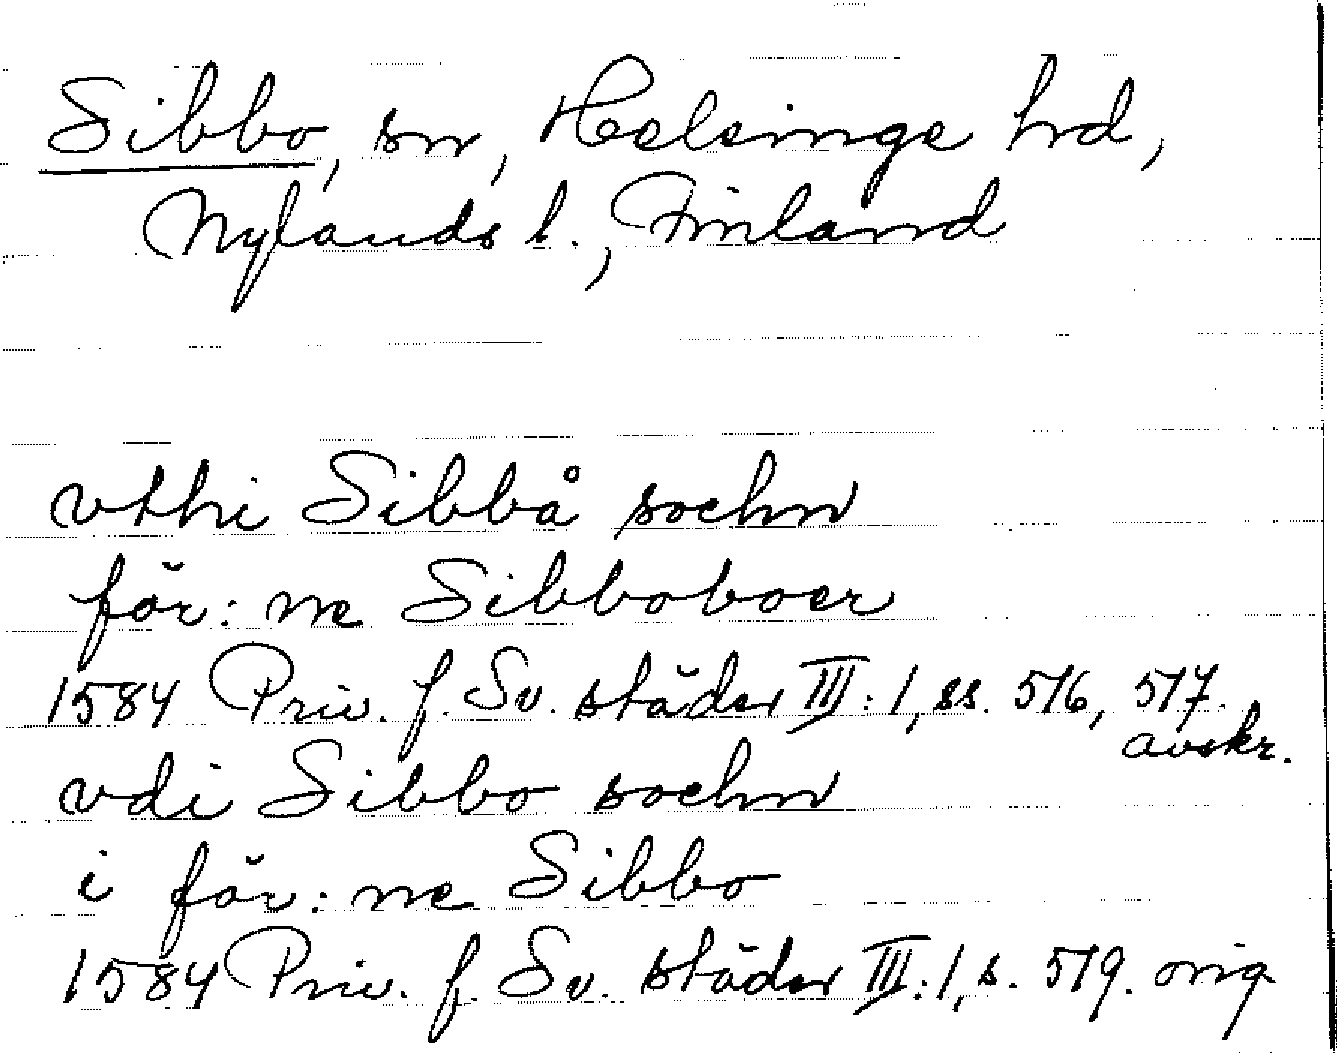 Sibbo, sn, Helsinge hrd,
Nylands l., Finland
vthi Sibbå sochn
för: ne Sibboboer
1584 Priv. f. Sv. städer III: 1, ss. 516, 517.
avskr.
vdi Sibbo sochn
i för: ne Sibbo
1584 Priv. f. Sv. städer III: 1, s. 519. orig